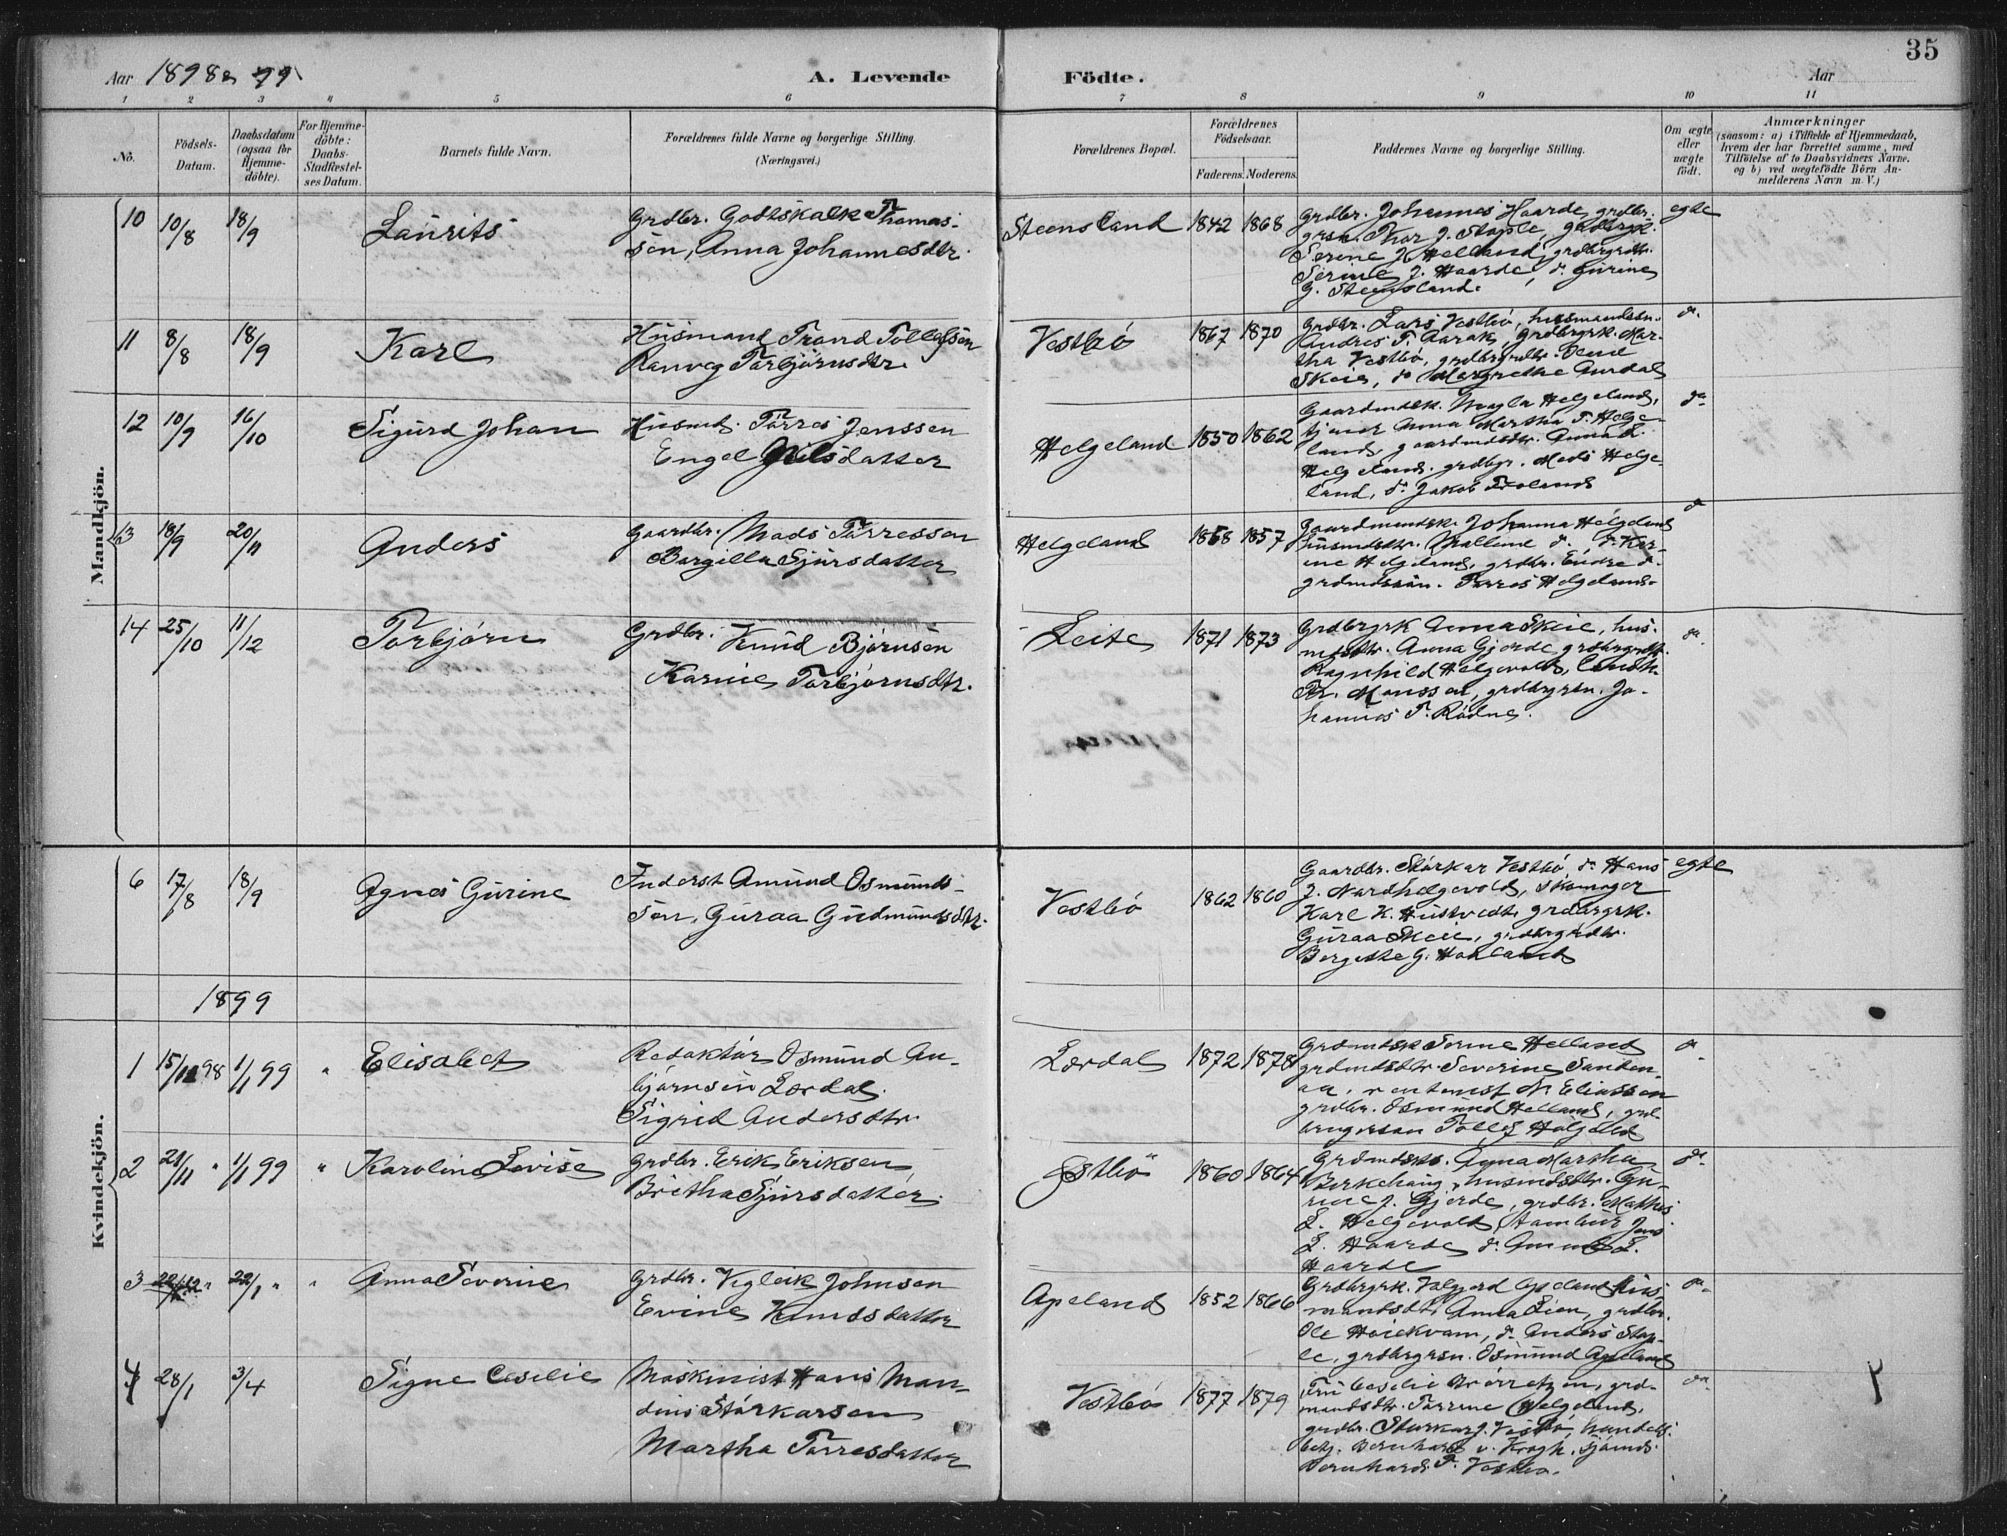 35
Aar 1898 99 A. Levende Födte. Aar
1 2 3 4 5 6 7 8 9 10 11
No.
Födsels-Datum.
Daabsdatum (ogsaa for Hjemme-döbte).
For Hjemme-döbte: Daabs-Stadfæstelses Datum.
Barnets fulde Navn.
Forældrenes fulde Navne og borgerlige Stilling. (Næringsvei.)
Forældrenes Bopæl.
Forældrenes Födselsaar.
Faderens. Moderens.
Faddernes Navne og borgerlige Stilling.
Om ægte eller uægte födt.
Anmærkninger
(saasom: a) i Tilfælde af Hjemmedaab, hvem der har forrettet samme, med Tilföielse af to Daabsvidners Navne. og b) ved uægtefödte Börn Anmelderens Navn m. V.)
Mandkjön.
10 10/8 18/9 Laurits
Grdbr. Godtskalk Thomas-
sen, Anna Johannesdtr.
Steensland 1842 1868
Grdbr. Johannes Haarde, grdbr.
Serine J. Helland, grdbrgrdtr.
Serine J. Haarde, do Gurine
G. Steensland.
egte
11 8/8 18/9 Karl
Husmand Trond Tollefsen
Ranveg Torbjørnsdtr.
Vestbö 1867 1870
Grdbr. Lars Vestbö, husmandssn.
Andres T. Aarak, grdbrgrk. Mar-
tha Vestbö, grdbrgrdtr. Oline
Skeie, do Margrethe Aurdal
do
12 10/9 16/10 Sigurd Johan
Husmd. Törres Jenssen
Engel Nilsdatter
Helgeland 1850 1862
Gaardmdsk. Helgeland,
Anna Martha T. Helge-
land, gaardmdsdtr. Anna L.
Helgeland. grdbr. Mads Helge-
land, do Jakob
do
13 18/9 20/11 Anders
Gaardbr. Mads Törressen
Bargilla Sjursdatter
Helgeland 1858 1857
Gaardmandsk. Johanna Helgeland
husmdsdtr. Malline do. do Kar-
ine Helgeland, grdbr. Endre do
grdmdssön. Törres Helgeland
do
14 25/10 11/12 Torbjörn
Grdbr. Knud Bjørnsen
Karine Torbjørnsdtr.
Leite 1871 1873
Grdbrgrk Anna Skeie, hus-
mdsdtr. Anna Gjerde, grdbrgrdtr.
Ragnhild Helgevold,
Fr. Monssen, grdbrgrsn. Jo-
hannes T. Rödne.
do
Kvindekjön.
6 17/8 18/9 Agnes Gurine
Inderst Amund Osmunds-
sen, Guraa Gudmundsdtr.
Vestbö 1862 1860
Gaardbr. Störkar Vestbö, do Hans
J. Nordhelgevold, skomager
Karl K. Hustvedt, grdbrgrk.
Guraa Skeie, grdbrgrdtr.
Bergette G. Hovland
egte
1899
1 15/12 98 1/1 99 " Elisabet
Redaktør Osmund An-
bjørnsen Lærdal.
Sigrid Andersdtr.
Lærdal 1872 1878
Grdmdsk Serine Helland
grdmdsdtr. Severine Sanden-
aa, N. Eliassen
grdbr. Osmund Helland,
Tollef
do
2 21/11 " 1/1 99 " Karoline Lovise
Grdbr. Erik Eriksen
Britha Sjursdatter.
Østbö 1860 1864
Grdmdsk. Anna Martha
Birkehaug, husmdsdtr. Gu-
rine J. Gjerde, grdbr. Mathis
L. Helgevold, Jens
L. Haarde do Amund L.
Haarde
do
3 22/12 " 22/1 " " Anna Severine
Grdbr. Vigleik Johnsen
Evine Knudsdatter
Apeland 1852 1866
Grdbrgrk. Valgjerd Apeland, hus-
mandsdtr. Anna Lien, grdbr.
Ole Høiekvam, do Anders Stop-
le, grdbrgrsn. Osmund Apeland
do
4 28/1 3/4 Signe Cesilie
Maskinist Hans Man-
dius Störkarsen
Martha Törresdatter
Vestbö 1877 1879
Fru Ceselie
mandsdtr. Törrine Helgeland,
grdbr. Störkar J. Vestbö, handels-
betj. Bernhard v. Krogh, sjömd.
Bernhard T. Vestbö.
do